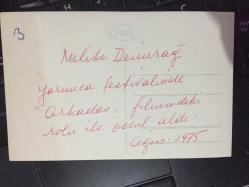 3
Melike Demirağ
Yarımca festivalinde
"Arkadaş" filmindeki
rolü ile ödül aldı.
Ağus. 1975